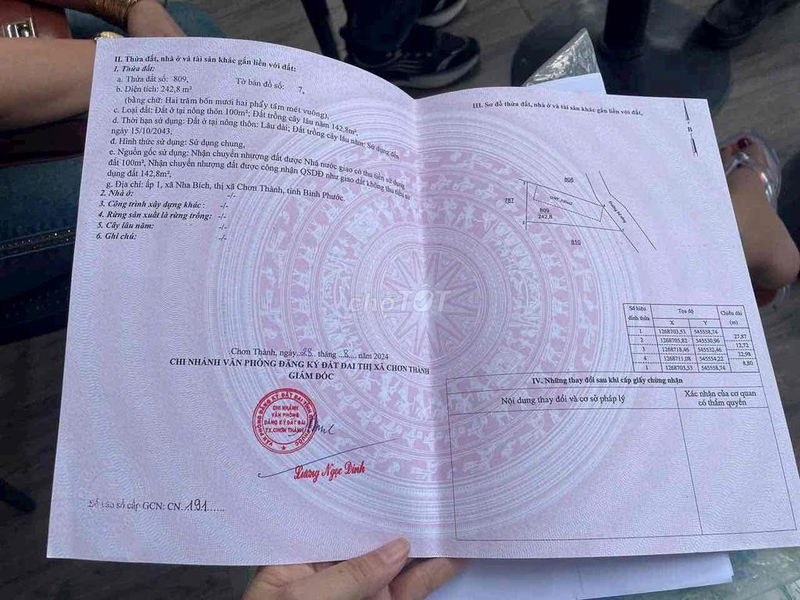 II. Thửa đất, nhà ở và tài sản khác gắn liền với đất:
1. Thửa đất:
a. Thửa đất số: 809, Tờ bản đồ số: 7,
b. Diện tích: 242,8 m²
(bằng chữ: Hai trăm bốn mươi hai phẩy tám mét vuông),
c. Loại đất: Đất ở tại nông thôn 100m²; Đất trồng cây lâu năm 142,8m²,
d. Thời hạn sử dụng: Đất ở tại nông thôn: Lâu dài; Đất trồng cây lâu năm: Sử dụng đến
ngày 15/10/2043,
đ. Hình thức sử dụng: Sử dụng chung,
e. Nguồn gốc sử dụng: Nhận chuyển nhượng đất được Nhà nước giao có thu tiền sử dụng
đất 100m²; Nhận chuyển nhượng đất được công nhận QSDĐ như giao đất không thu tiền sử
dụng đất 142,8m²,
g. Địa chỉ: ấp 1, xã Nha Bích, thị xã Chơn Thành, tỉnh Bình Phước.
2. Nhà ở: -/-
3. Công trình xây dựng khác : -/-
4. Rừng sản xuất là rừng trồng: -/-
5. Cây lâu năm: -/-
6. Ghi chú: -/-
Chơn Thành, ngày 28 tháng 8 năm 2024
CHI NHÁNH VĂN PHÒNG ĐĂNG KÝ ĐẤT ĐAI THỊ XÃ CHƠN THÀNH
GIÁM ĐỐC
CHI NHÁNH
VĂN PHÒNG
ĐĂNG KÝ ĐẤT ĐAI
TX.CHƠN THÀNH
Lương Ngọc Dinh
Số vào sổ cấp GCN: CN 191
III. Sơ đồ thửa đất, nhà ở và tài sản khác gắn liền với đất,
B
808
787
809
242,8
810
Số hiệu đỉnh thửa Tọa độ Chiều dài (m)
X Y
1 1268703,53 545558,74
27,87
2 1268705,82 545530,96
12,72
3 1268718,46 545532,46
22,98
4 1268711,08 545554,22
8,80
1 1268703,53 545558,74
IV. Những thay đổi sau khi cấp giấy chứng nhận
Nội dung thay đổi và cơ sở pháp lý
Xác nhận của cơ quan
có thẩm quyền
chợTỐT